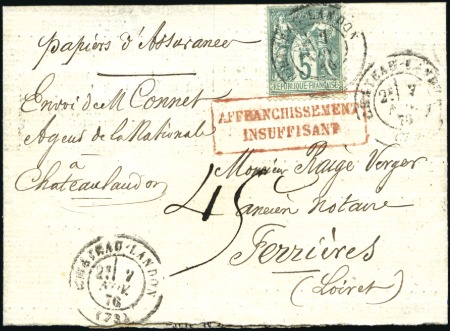 papiers d'Assurances
Envoi de M Connet
Agent de la Nationale
à
Chateaulandon
5
REPUBLIQUE FRANCAISE
CHATEAU-LANDON
CHATEAU-LANDON
2E 7
76
(73)
AFFRANCHISSEMENT
INSUFFISANT
Monsieur Raige Verger
ancien notaire
Ferrières
(Loiret)
45
CHATEAU-LANDON
2E 7
76
(73)